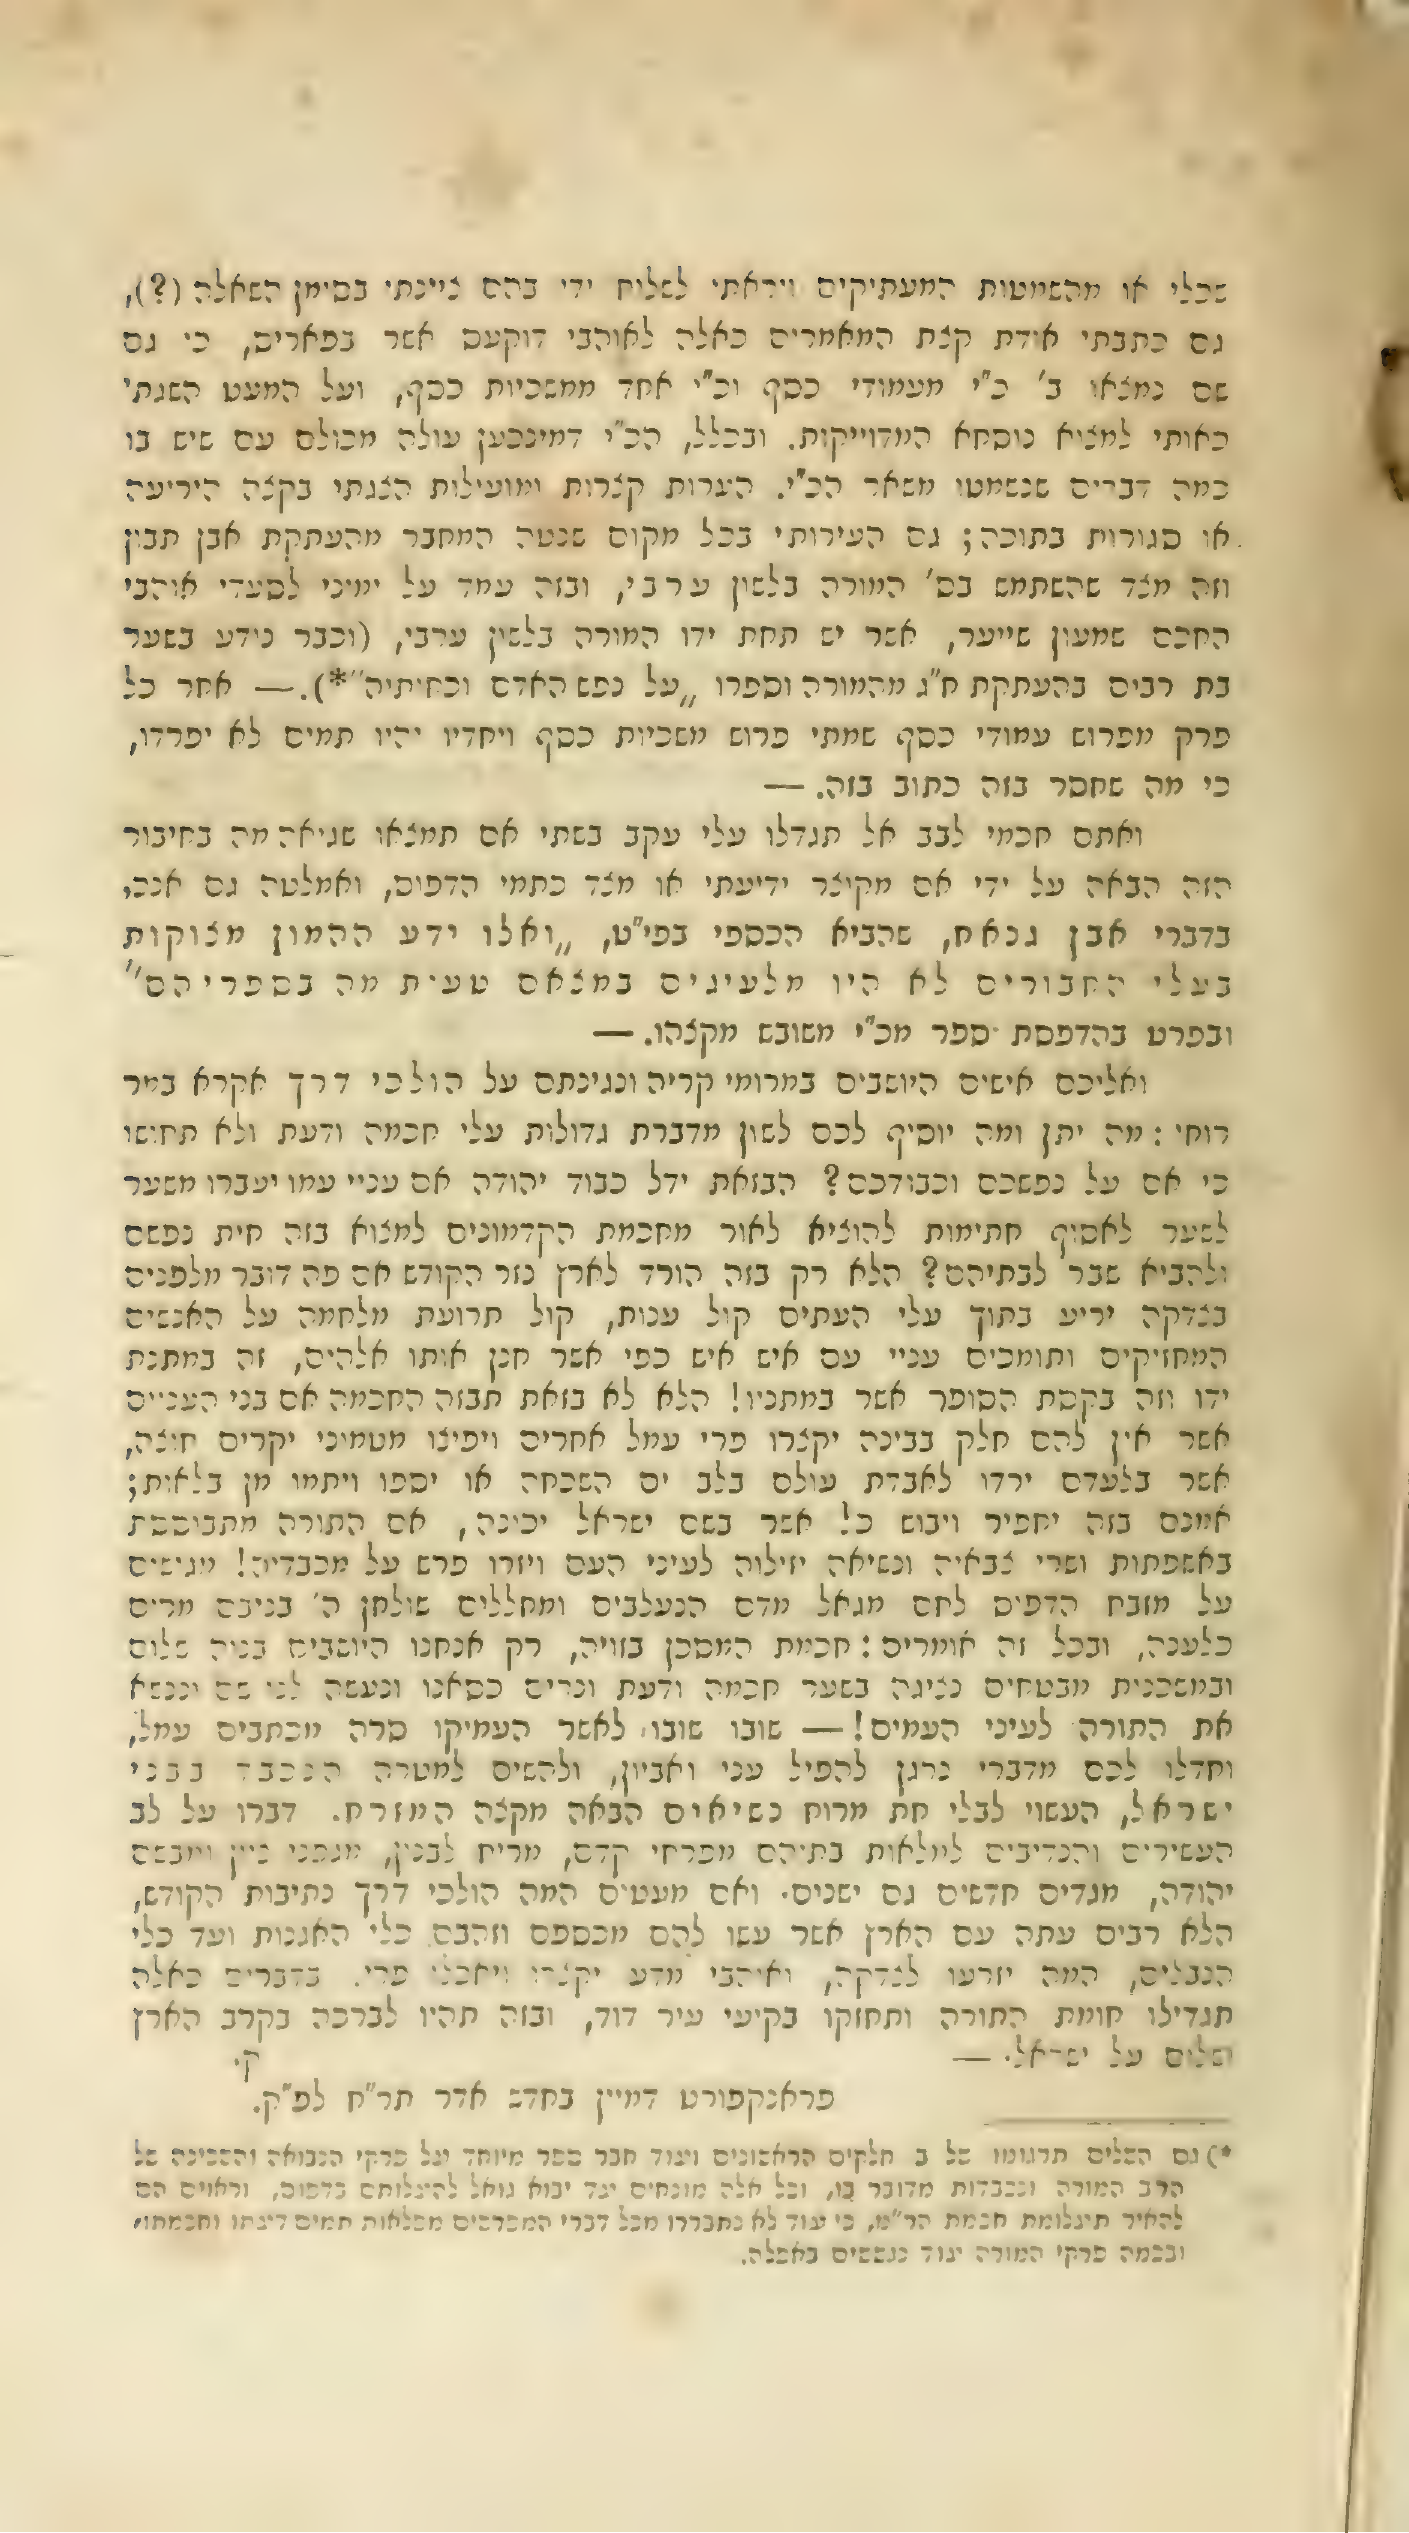 שכלי או מהשמטות המעתיקים ויראתי לשלוח ידי בהם ציינתי בסימן השאלה (?),
גם כתבתי אודת קצת המאמרים כאלה לאוהבי דוקעס אשר בפאריס, כי גם
שם נמצאו ב' כ"י מעמודי כסף וכ"י אחד ממשכיות כסף, ועל המעט השגתי
כאותי למצוא נוסחא המדוייקות. ובכלל, הכ"י דמינכען עולה מכולם עם שיש בו
כמה דברים שנשמטו משאר הכ"י. הערות קצרות ומועילות הצגתי בקצה היריעה
או סגורות בתוכה; גם העירותי בכל מקום שנטה המחבר מהעתקת אבן תבון
וזה מצד שהשתמש בס' המורה בלשון ערבי, ובזה עמד על ימיני לסעדי אוהבי
החכם שמעון שייער, אשר יש תחת ידו המורה בלשון ערבי, (וכבר נודע בשער
בת רבים בהעתקת ח"ג מהמורה וספרו „על נפש האדם וכחותיה"*). — אחר כל
פרק מפרוש עמודי כסף שמתי פרוש משכיות כסף ויחדיו יהיו תמים לא יפרדו,
כי מה שחסר בזה כתוב בזה. —
ואתם חכמי לבב אל תגדלו עלי עקב בשתי אם תמצאו שגיאה מה בחיבור
הזה הבאה על ידי אם מקוצר ידיעתי או מצד כתמי הדפוס, ואמלטה גם אנכי
בדברי אבן גנאח, שהביא הכספי בפי"ט, „ואלו ידע ההמון מצוקות
בעלי החבורים לא היו מלעיגים במצאם טעות מה בספריהם"
ובפרט בהדפסת ספר מכ"י משובש מקצהו. —
ואליכם אישים היושבים במרומי קריה ונגינתם על הולכי דרך אקרא במר
רוחי: מה יתן ומה יוסיף לכם לשון מדברת גדולות עלי חכמה ודעת ולא תחושו
כי אם על נפשכם וכבודכם? הבזאת ידל כבוד יהודה אם עניי עמו יעברו משער
לשער לאסוף חתימות להוציא לאור מחכמת הקדמונים למצוא בזה חית נפשם
ולהביא שבר לבתיהם? הלא רק בזה הורד לארץ נזר הקודש אם פה דובר מלפנים
בצדקה יריע בתוך עלי העתים קול ענות, קול תרועת מלחמה על האנשים
המחזיקים ותומכים עניי עם איש איש כפי אשר חנן אותו אלהים, זה במתנת
ידו וזה בקסת הסופר אשר במתניו! הלא לא בזאת תבזה החכמה אם בני העניים
אשר אין להם חלק בבינה יקצרו פרי עמל אחרים ויפיצו מטמוני יקרים חוצה,
אשר בלעדם ירדו לאבדת עולם בלב ים השכחה או יספו ויתמו מן בלאות;
אמנם בזה יחפיר ויבוש כל אשר בשם ישראל יכונה, אם התורה מתבוססת
באשפתות ושרי צבאיה ונשיאה יזילוה לעיני העם ויזרו פרש על מכבדיה! מגישים
על מזבח הדפוס לחם מגאל מדם הנעלבים ומחללים שולחן ה' בניבם מרים
כלענה, ובכל זה אומרים: חכמת המסכן בזויה, רק אנחנו היושבים בנוה שלום
ובמשכנות מבטחים נציגה בשער חכמה ודעת ונרים כסאנו ונעשה לנו שם ונשא
את התורה לעיני העמים! — שובו שובו לאשר העמיקו סרה מכתבים עמל,
וחדלו לכם מדברי נרגן להפיל עני ואביון, ולהשים למטרה הנכבד בבני
ישראל, העשוי לבלי חת מרוח נשיאים הבאה מקצה המזרח. דברו על לב
העשירים והנדיבים למלאות בתיהם מפרחי קדם, מריח לבנון, מגפני ציון ומבשם
יהודה, מגדים חדשים גם ישנים. ואם מעטים המה הולכי דרך נתיבות הקודש,
הלא רבים עתה עם הארץ אשר עשו להם מכספם וזהבם כלי האגנות ועד כלי
הנבלים, המה יזרעו לצדקה, ואוהבי מדע יקצרו ויאכלו פרי. בדברים כאלה
תגדילו חומת התורה ותחזקו בקיעי עיר דוד, ובזה תהיו לברכה בקרב הארץ
ושלום על ישראל. —
ק'
פראנקפורט דמיין בחדש אדר תר"ח לפ"ק.
*) גם השלים תרגומו של ב חלקים הראשונים ועוד חבר ספר מיוחד על פרקי הנבואה והשכינה של
הרב המורה ונכבדות מדובר בו, וכל אלה מונחים עד יבוא גואל להעלותם בדפוס, וראוים הם
להאיר תעלומת חכמת הר"מ, כי עוד לא נתבררו מכל דברי המפרשים מפלאות תמים דעתו וחכמתו,
ובכמה פרקי המורה עוד נגששים באפלה.